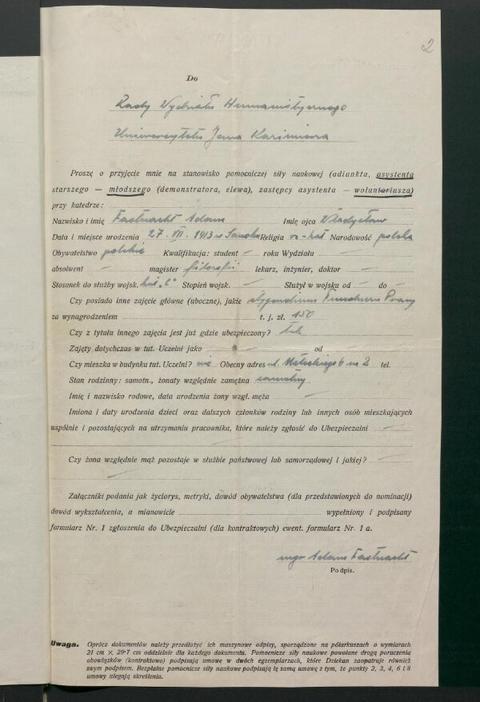 2
Do
Rady Wydziału Humanistycznego
Uniwersytetu Jana Kazimierza
Proszę o przyjęcie mnie na stanowisko pomocniczej siły naukowej (adiunkta, asystenta
starszego — młodszego (demonstratora, elewa), zastępcy asystenta — woluntariusza)
przy katedrze:
Nazwisko i imię Fastnacht Adam Imię ojca Władysław
Data i miejsce urodzenia 27. VII. 1913 w Sanoku Religia rz-kat Narodowość polska
Obywatelstwo polskie Kwalifikacja: student — roku Wydziału —
absolwent — magister filozofii lekarz, inżynier, doktor —
Stosunek do służby wojsk. kat. "C" Stopień wojsk. — Służył w wojsku od — do —
Czy posiada inne zajęcie główne (uboczne), jakie stypendium Funduszu Pracy
za wynagrodzeniem t. j. zł. 150
Czy z tytułu innego zajęcia jest już gdzie ubezpieczony? tak
Zajęty dotychczas w tut. Uczelni jako — od —
Czy mieszka w budynku tut. Uczelni? nie Obecny adres ul. 6 m 2 tel.
Stan rodzinny: samotn., żonaty względnie zamężna samotny
Imię i nazwisko rodowe, data urodzenia żony wzgl. męża —
Imiona i daty urodzenia dzieci oraz dalszych członków rodziny lub innych osób mieszkających
wspólnie i pozostających na utrzymaniu pracownika, które należy zgłosić do Ubezpieczalni —
Czy żona względnie mąż pozostaje w służbie państwowej lub samorządowej i jakiej? —
Załączniki podania jak życiorys, metryki, dowód obywatelstwa (dla przedstawionych do nominacji)
dowód wykształcenia, a mianowicie wypełniony i podpisany
formularz Nr. 1 zgłoszenia do Ubezpieczalni (dla kontraktowych) ewent. formularz Nr. 1 a.
mgr Adam Fastnacht
Podpis.
Uwaga. Oprócz dokumentów należy przedłożyć ich maszynowe odpisy, sporządzone na półarkuszach o wymiarach
21 cm × 29·7 cm oddzielnie dla każdego dokumentu. Pomocnicze siły naukowe powołane drogą poruczenia
obowiązków (kontraktowe) podpisują umowę w dwóch egzemplarzach, które Dziekan zaopatruje również
swym podpisem. Bezpłatne pomocnicze siły naukowe podpisują tę samą umowę z tym, że punkty 2, 3, 4, 6 i 8
umowy ulegają skreśleniu.